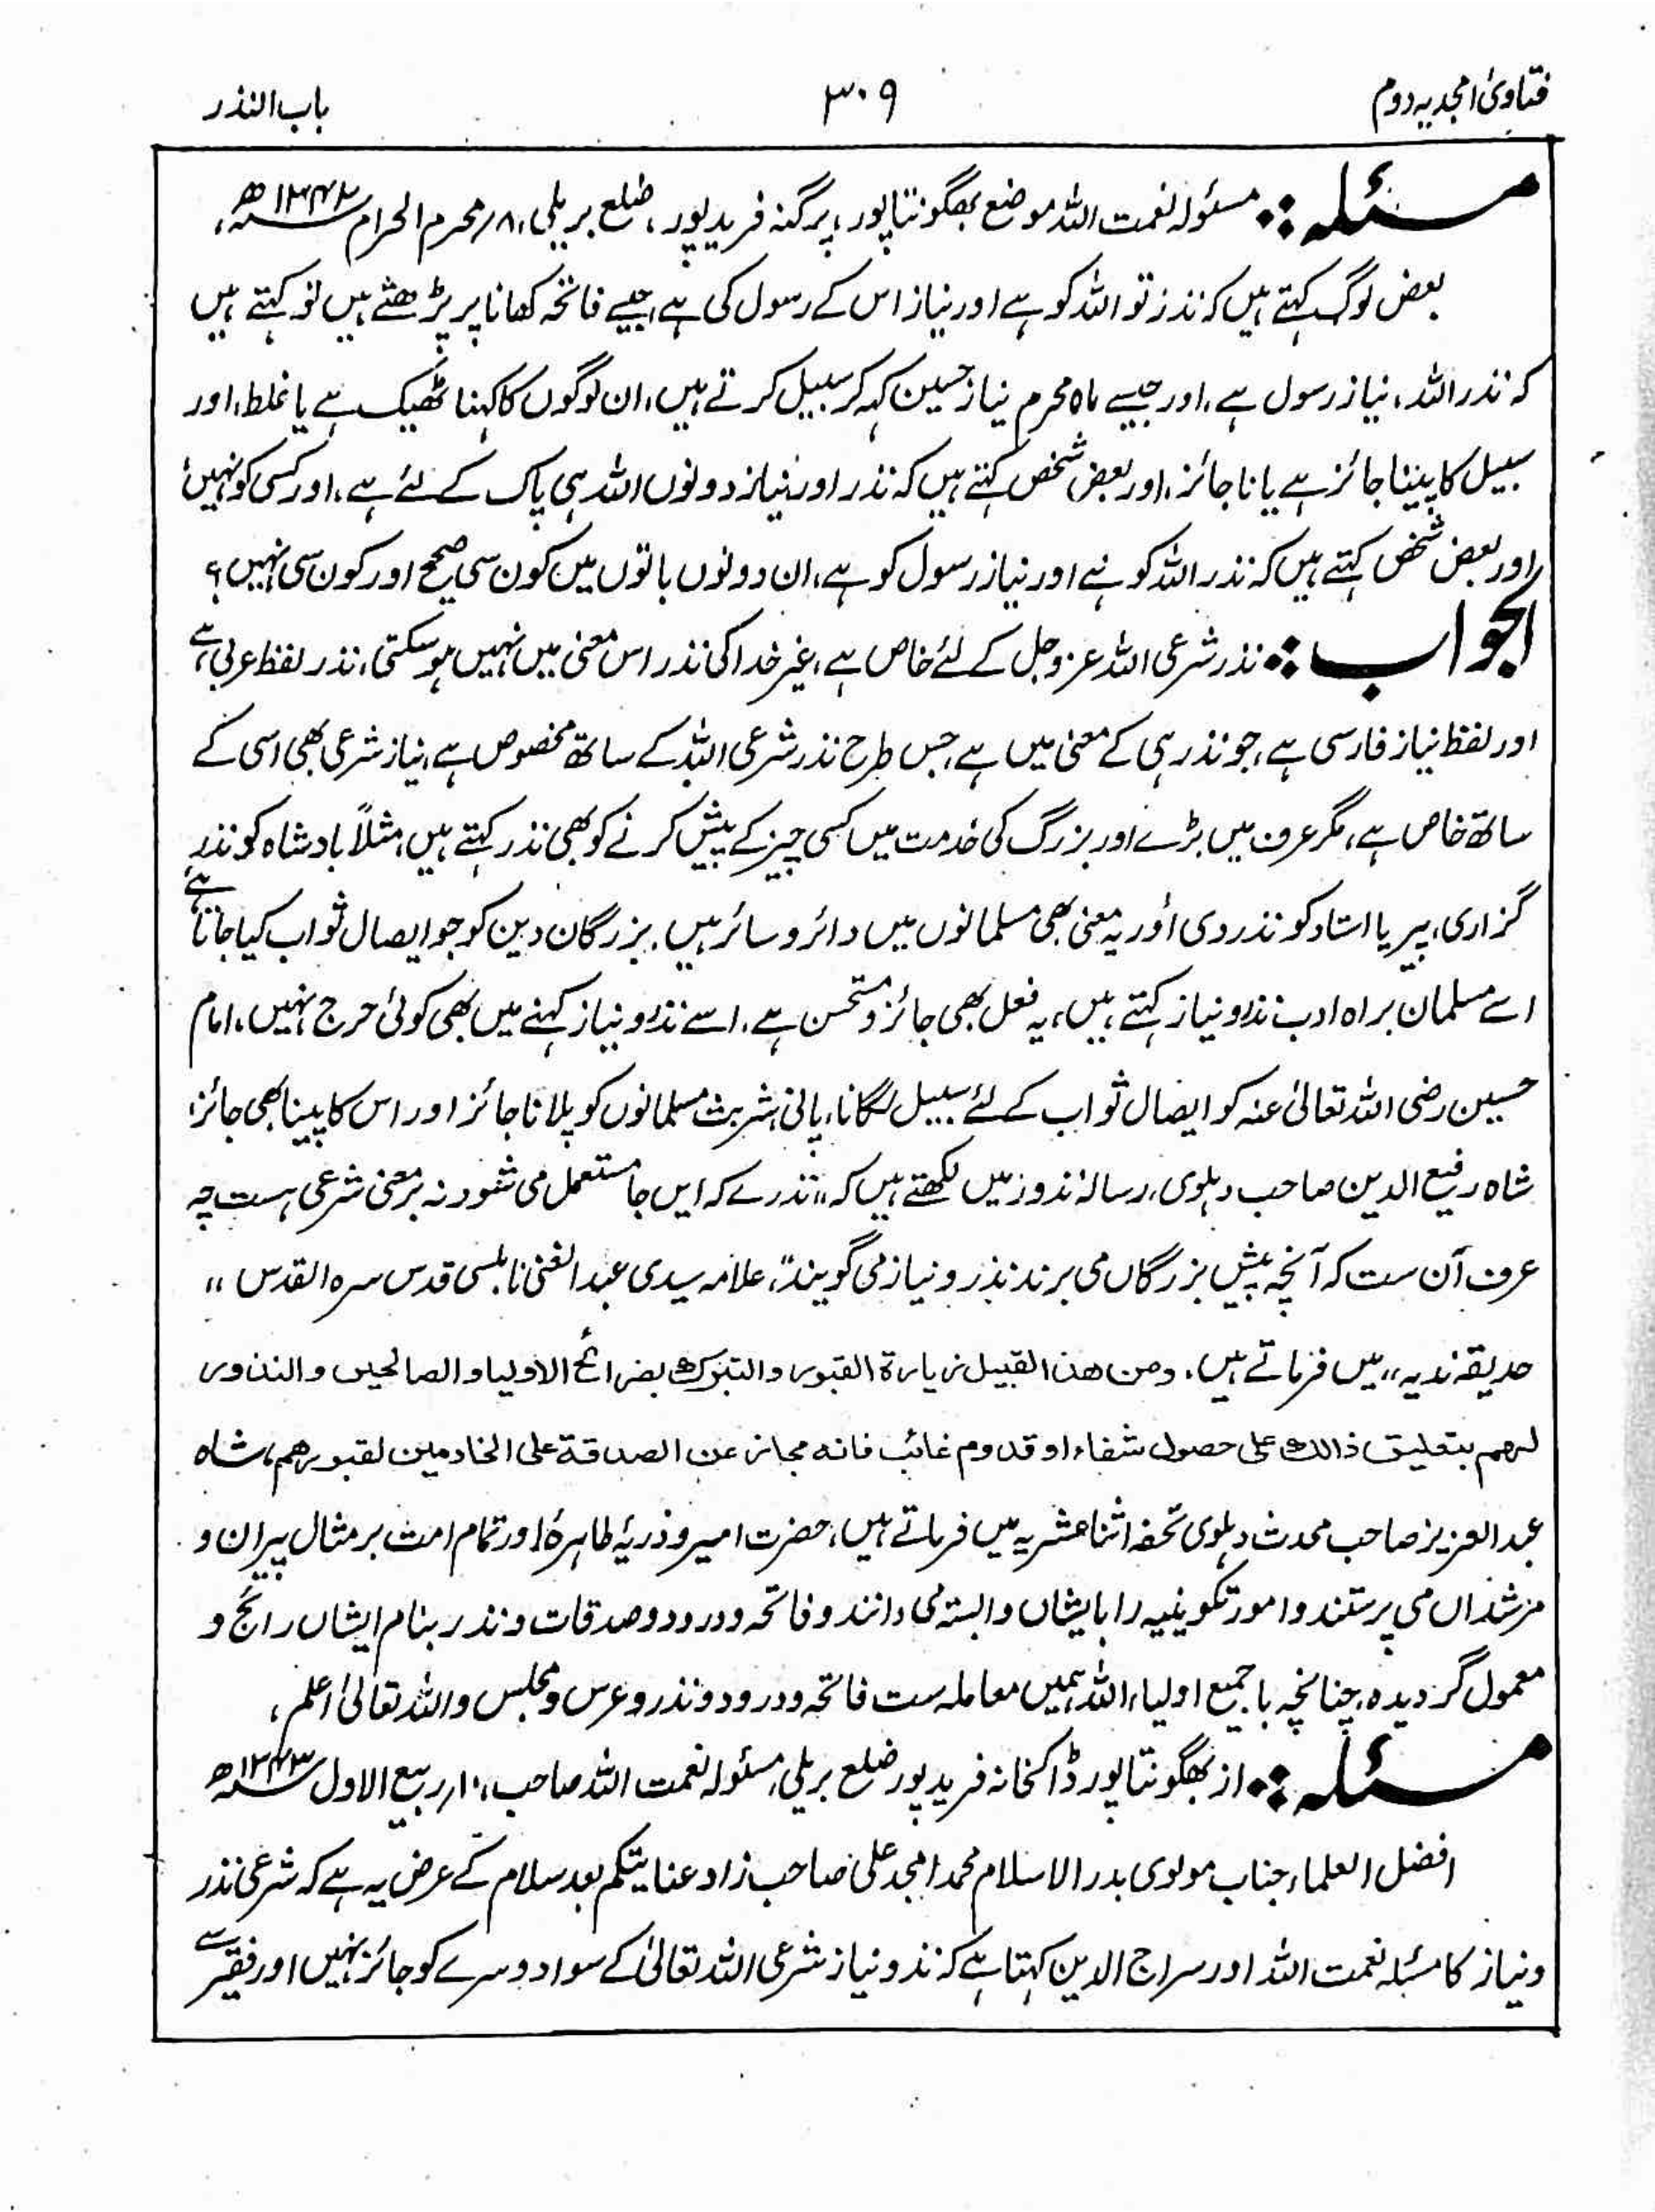 فتاویٰ امجدیہ دوم ۳۰۹ باب النذر
مسئلہ :: مسئولہ نعمت اللہ موضع بھگونتاپور، پرگنہ فریدپور، ضلع بریلی، ۸/محرم الحرام ۱۳۴۲ھ،
بعض لوگ کہتے ہیں کہ نذر تو اللہ کو ہے اور نیاز اس کے رسول کی ہے، جیسے فاتحہ کھانا پر پڑھتے ہیں تو کہتے ہیں
کہ نذر اللہ، نیاز رسول ہے، اور جیسے ماہ محرم نیاز حسین کہہ کر سبیل کرتے ہیں، ان لوگوں کا کہنا ٹھیک ہے یا غلط، اور
سبیل کا پینا جائز ہے یا ناجائز، اور بعض شخص کہتے ہیں کہ نذر اور نیاز دونوں اللہ ہی پاک کے لئے ہے، اور کسی کو نہیں
اور بعض شخص کہتے ہیں کہ نذر اللہ کو ہے اور نیاز رسول کو ہے، ان دونوں باتوں میں کون سی صحیح اور کون سی نہیں؟
الجواب :: نذر شرعی اللہ عزوجل کے لئے خاص ہے، غیر خدا کی نذر اس معنی میں نہیں ہو سکتی، نذر لفظ عربی ہے،
اور لفظ نیاز فارسی ہے، جو نذر ہی کے معنی میں ہے، جس طرح نذر شرعی اللہ کے ساتھ مخصوص ہے، نیاز شرعی بھی اسی کے
ساتھ خاص ہے، مگر عرف میں بڑے اور بزرگ کی خدمت میں کسی چیز کے پیش کرنے کو بھی نذر کہتے ہیں، مثلاً بادشاہ کو نذر
گزاری، پیر یا استاد کو نذر دی اور یہ معنی بھی مسلمانوں میں دائر و سائر ہیں، بزرگان دین کو جو ایصال ثواب کیا جاتا ہے
اسے مسلمان براہ ادب نذر و نیاز کہتے ہیں، یہ فعل بھی جائز و مستحسن ہے، اسے نذر و نیاز کہنے میں بھی کوئی حرج نہیں، امام
حسین رضی اللہ تعالیٰ عنہ کو ایصال ثواب کے لئے سبیل لگانا، پانی شربت مسلمانوں کو پلانا جائز اور اس کا پینا بھی جائز،
شاہ رفیع الدین صاحب دہلوی، رسالۂ نذور میں لکھتے ہیں کہ ،،نذرے کہ ایں جا مستعمل می شود نہ بر معنی شرعی ہست چہ
عرف آن ست کہ آنچہ پیش بزرگاں می برند نذر و نیاز می گویند"، علامہ سیدی عبد الغنی نابلسی قدس سرہ القدس ،،
حدیقہ ندیہ،، میں فرماتے ہیں، ومن ھذا القبیل زیارۃ القبور والتبرک بضرائح الاولیا والصالحین والنذور
لہم بتعلیق ذالک علی حصول شفاء او قدوم غائب فانہ مجاز عن الصدقۃ علی الخادمین لقبورہم، شاہ
عبد العزیز صاحب محدث دہلوی تحفہ اثنا عشریہ میں فرماتے ہیں، حضرت امیر و ذریۂ طاہرہ اور تمام امت بر مثال پیران و
مرشداں می پرستند و امور تکوینیہ را بایشاں وابستہ می دانند و فاتحہ و درود و صدقات و نذر بنام ایشاں رائج و
معمول گردیدہ، چنانچہ با جمیع اولیاء اللہ ہمیں معاملہ ست فاتحہ و درود و نذر و عرس و مجلس واللہ تعالیٰ اعلم،
مسئلہ :: از بھگونتاپور ڈاکخانہ فریدپور ضلع بریلی، مسئولہ نعمت اللہ صاحب، ۱۰/ربیع الاول ۱۳۴۳ھ
افضل العلماء جناب مولوی بدر الاسلام محمد امجد علی صاحب زاد عنایتکم بعد سلام کے عرض یہ ہے کہ شرعی نذر
و نیاز کا مسئلہ نعمت اللہ اور سراج الدین کہتا ہے کہ نذر و نیاز شرعی اللہ تعالیٰ کے سوا دوسرے کو جائز نہیں اور فقیر سے